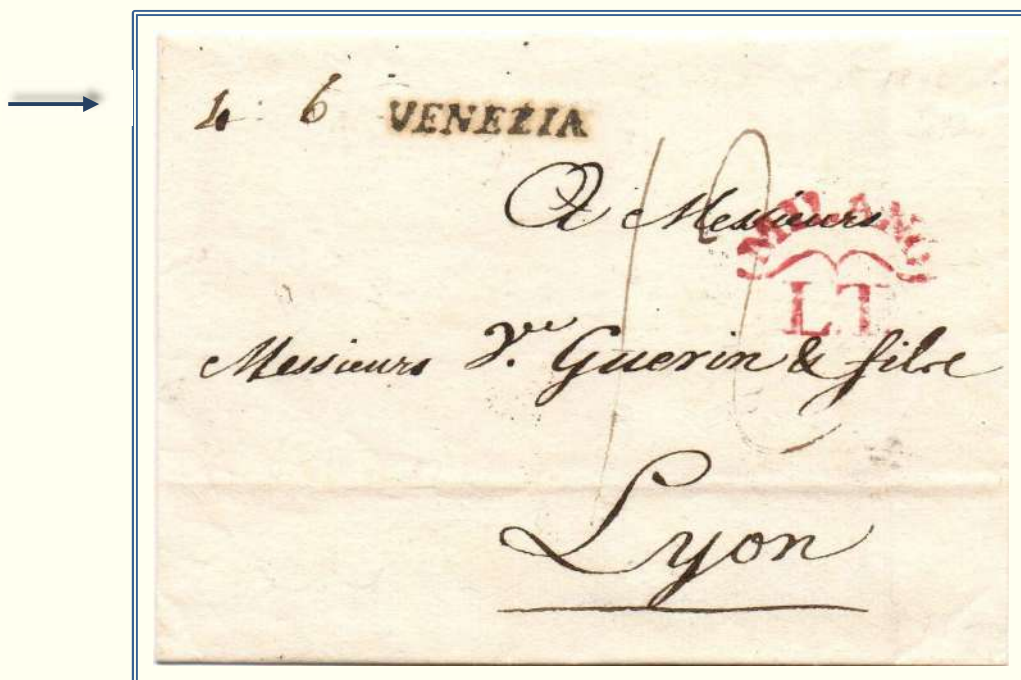 4 6 VENEZIA
A Messieurs
MILANO
L.T.
Messieurs V.ve Guerin & fils
Lyon